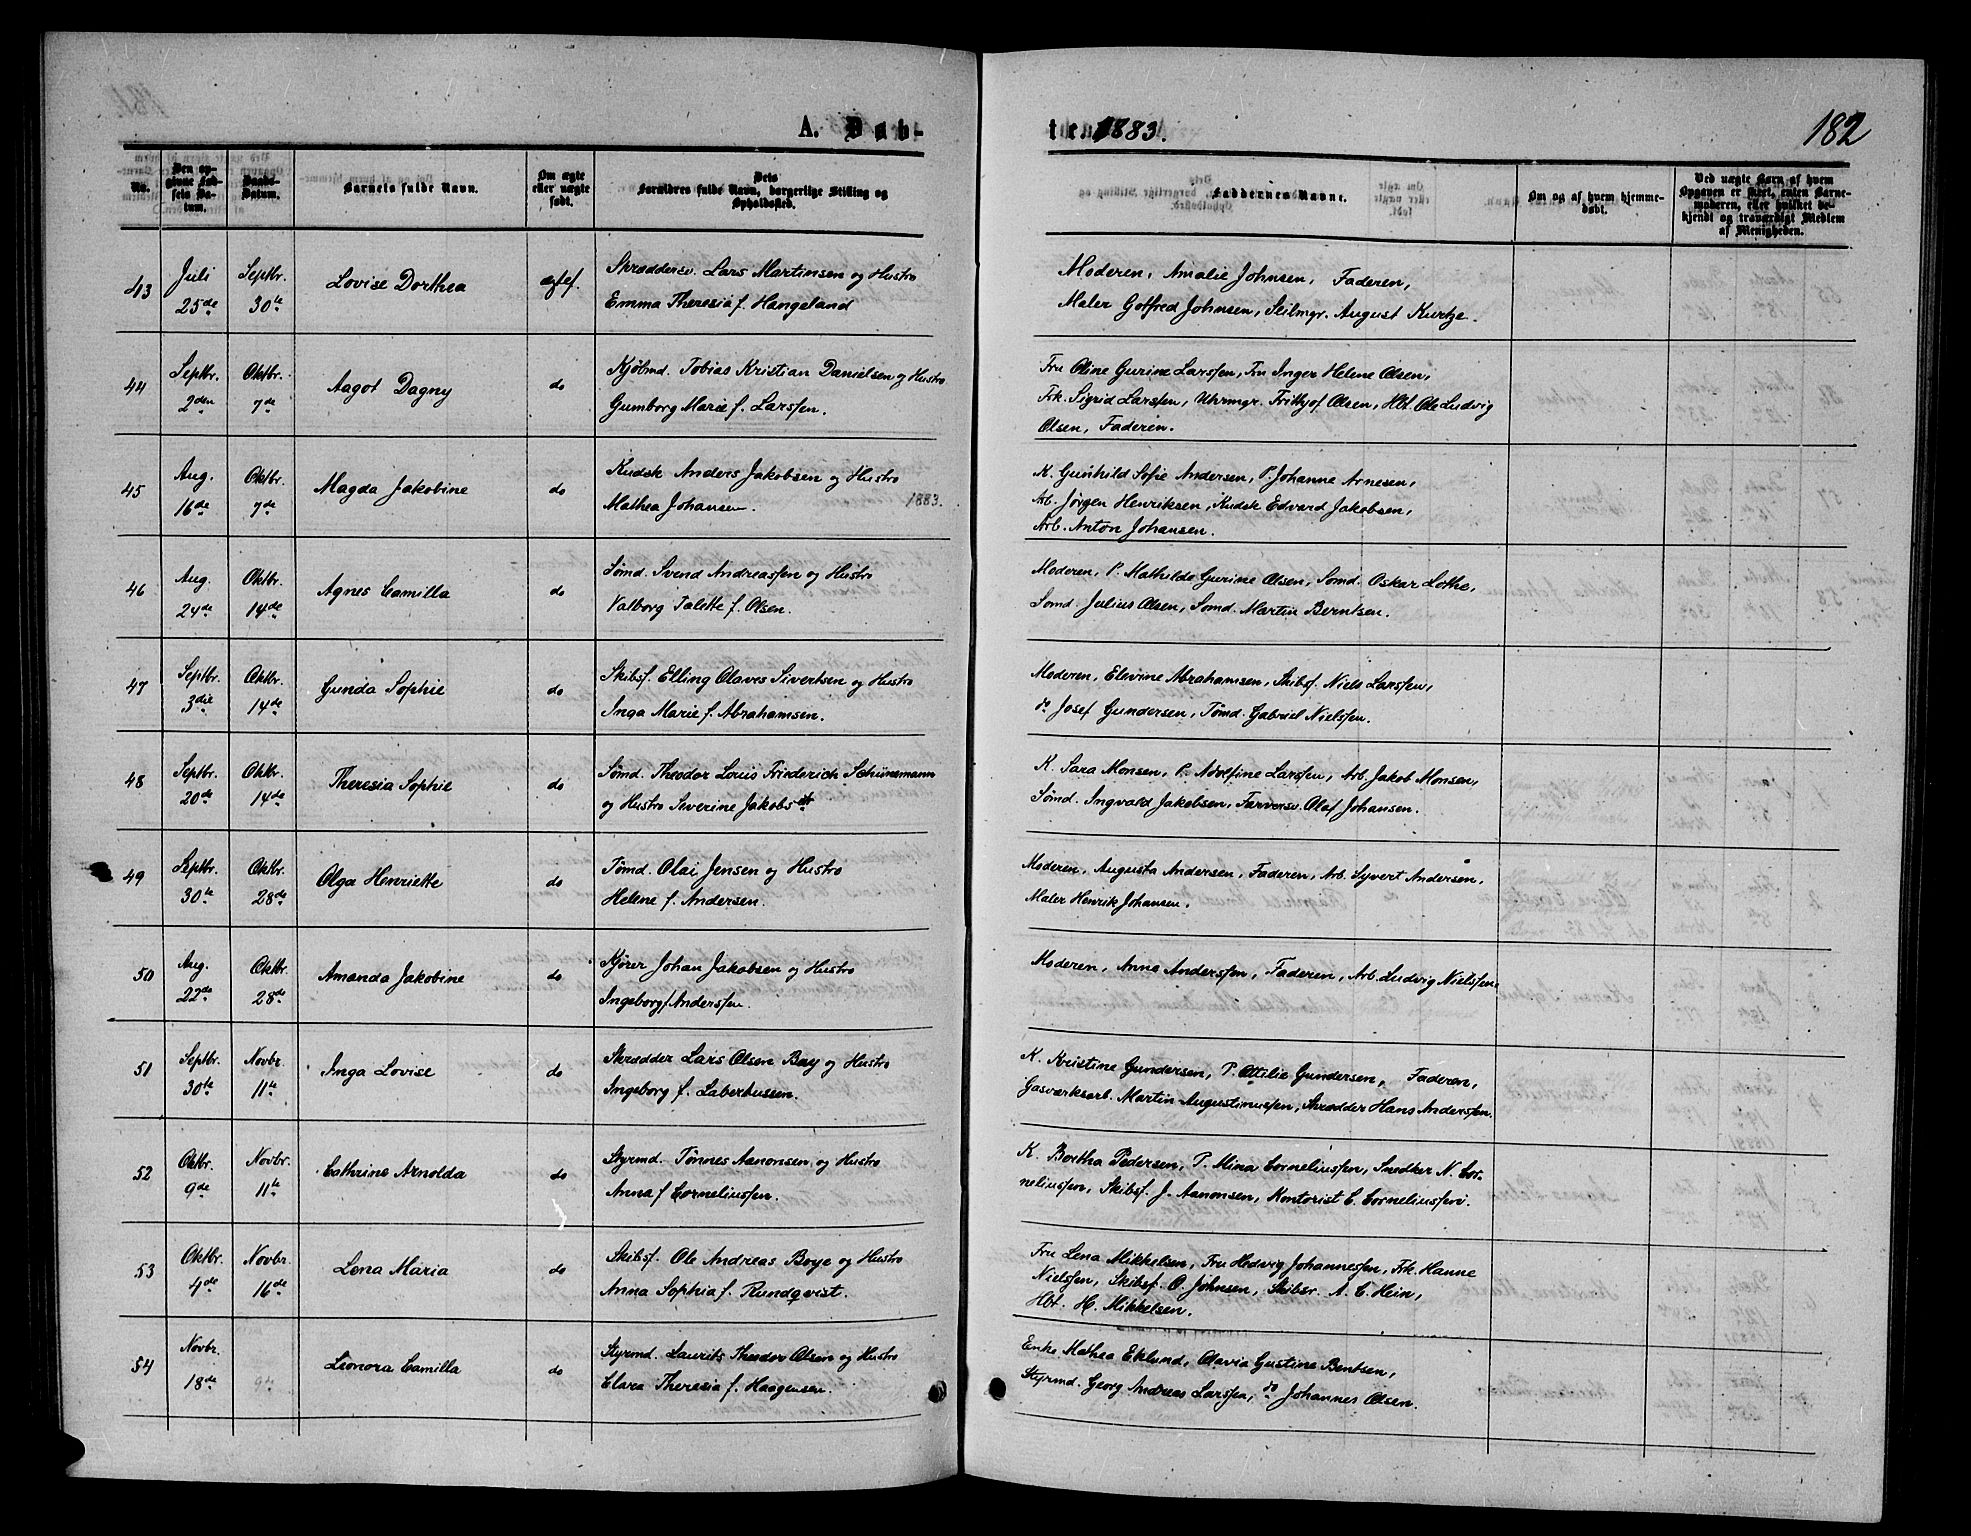 A. Døb-
ten 1883.
182
No.
Den op-
givne Fød-
sels Da-
tum.
Daabs-
Datum.
Barnets fulde Navn.
Om ægte
eller uægte
født.
Dets
Forældres fulde Navn, borgerlige Stilling og
Opholdssted.
Faddernes Navne.
Om og af hvem hjemme-
døbt.
Ved uægte Børn af hvem
Opgaven er skeet, enten Barne-
moderen, eller hvilket be-
kjendt og troværdigt Medlem
af Menigheden.
43 Juli 25de Septbr. 30te Lovise Dorthea ægtef.
Skræddersv. Lars Martinsen og Hustro
Emma Theresia f. Hangeland
Moderen, Amalie Johnsen, Faderen,
Maler Gotfred Johnsen, Seilmgr. August Kurtze.
44 Septbr. 2den Oktbr. 7de Aagot Dagny do
Kjøbmd. Tobias Kristian Danielsen og Hustro
Gumborg Marie f. Larssen.
Fru Oline Gurine Larssen, Fru Inger Helene Olsen,
Frk. Sigrid Larssen, Uhrmgr. Frithjof Olsen, Hbt. Ole Ludvig
Olsen, Faderen.
45 Aug. 16de Oktbr. 7de Magda Jakobine do
Kudsk Anders Jakobsen og Hustro
Mathea Johansen. 1883.
K. Gunhild Sofie Andersen, P. Johanne Arnesen,
Arb. Jørgen Henriksen, Kudsk Edvard Jakobsen,
Arb. Anton Johansen.
46 Aug. 24de Oktbr. 14de Agnes Camilla do
Sømd. Svend Andreassen og Hustro
Valborg Talette f. Olsen.
Moderen, P. Mathilde Gurine Olsen, Sømd. Oskar Lothe,
Sømd. Julius Olsen, Sømd. Martin Berntsen.
47 Septbr. 3die Oktbr. 14de Gunda Sophie do
Skibsf. Elling Olaves Sivertsen og Hustro
Inga Marie f. Abrahamsen.
Moderen, Elevine Abrahamsen, Skibsf. Niels Larssen,
do Josef Gundersen, Tømd. Gabriel Nielssen.
48 Septbr. 20de Oktbr. 14de Theresia Sophie do
Sømd. Theodor Louis Friederich Schünemann
og Hustro Severine Jakobsdt
K. Sara Monsen, P. Adolfine Larssen, Arb. Jakob Monsen,
Sømd. Ingvald Jakobsen, Farversv. Olaf Johansen.
49 Septbr. 30te Oktbr. 28de Olga Henriette do
Tømd. Olai Jensen og Hustro
Helene f. Andersen.
Moderen, Augusta Andersen, Faderen, Arb. Syvert Andersen,
Maler Henrik Johansen.
50 Aug. 22de Oktbr. 28de Amanda Jakobine do
Kjører Johan Jakobsen og Hustro
Ingeborg f Anderssen.
Moderen, Anne Anderssen, Faderen, Arb. Ludvig Nielssen.
51 Septbr. 30te Novbr. 11te Inga Lovise do
Skrædder Lars Olsen Bøy og Hustro
Ingeborg f. Laberhussen.
K. Kristine Gundersen, P. Ottilie Gundersen, Faderen,
Gasværksarb. Martin Augustinussen, Skrædder Hans Anderssen.
52 Oktbr. 9de Novbr. 11te Cathrine Arnolda do
Styrmd. Tønnes Aanonsen og Hustro
Anna f Corneliussen.
K. Bertha Pedersen, P. Mina Corneliussen, Snedker N. Cor-
neliussen, Skibsf. J. Aanonsen, Kontorist C. Corneliussen.
53 Oktbr. 4de Novbr. 16de Lena Maria do
Skibsf. Ole Andreas Boye og Hustro
Anna Sophia f. Rundqvist.
Fru Lena Mikkelsen, Fru Hedvig Johannessen, Frk. Hanne
Nielssen, Skibsf. O. Johnsen, Skibsr. A. C. Hein,
Hbt. H. Mikkelsen.
54 Novbr. 18de Leonora Camilla do
Styrmd. Laurits Theodor Olsen og Hustro
Clara Theresia f. Haagensen.
Enke Mathea Eklund, Olavia Gustine Bentsen,
Styrmd. Georg Andreas Larssen, do Johannes Olsen.